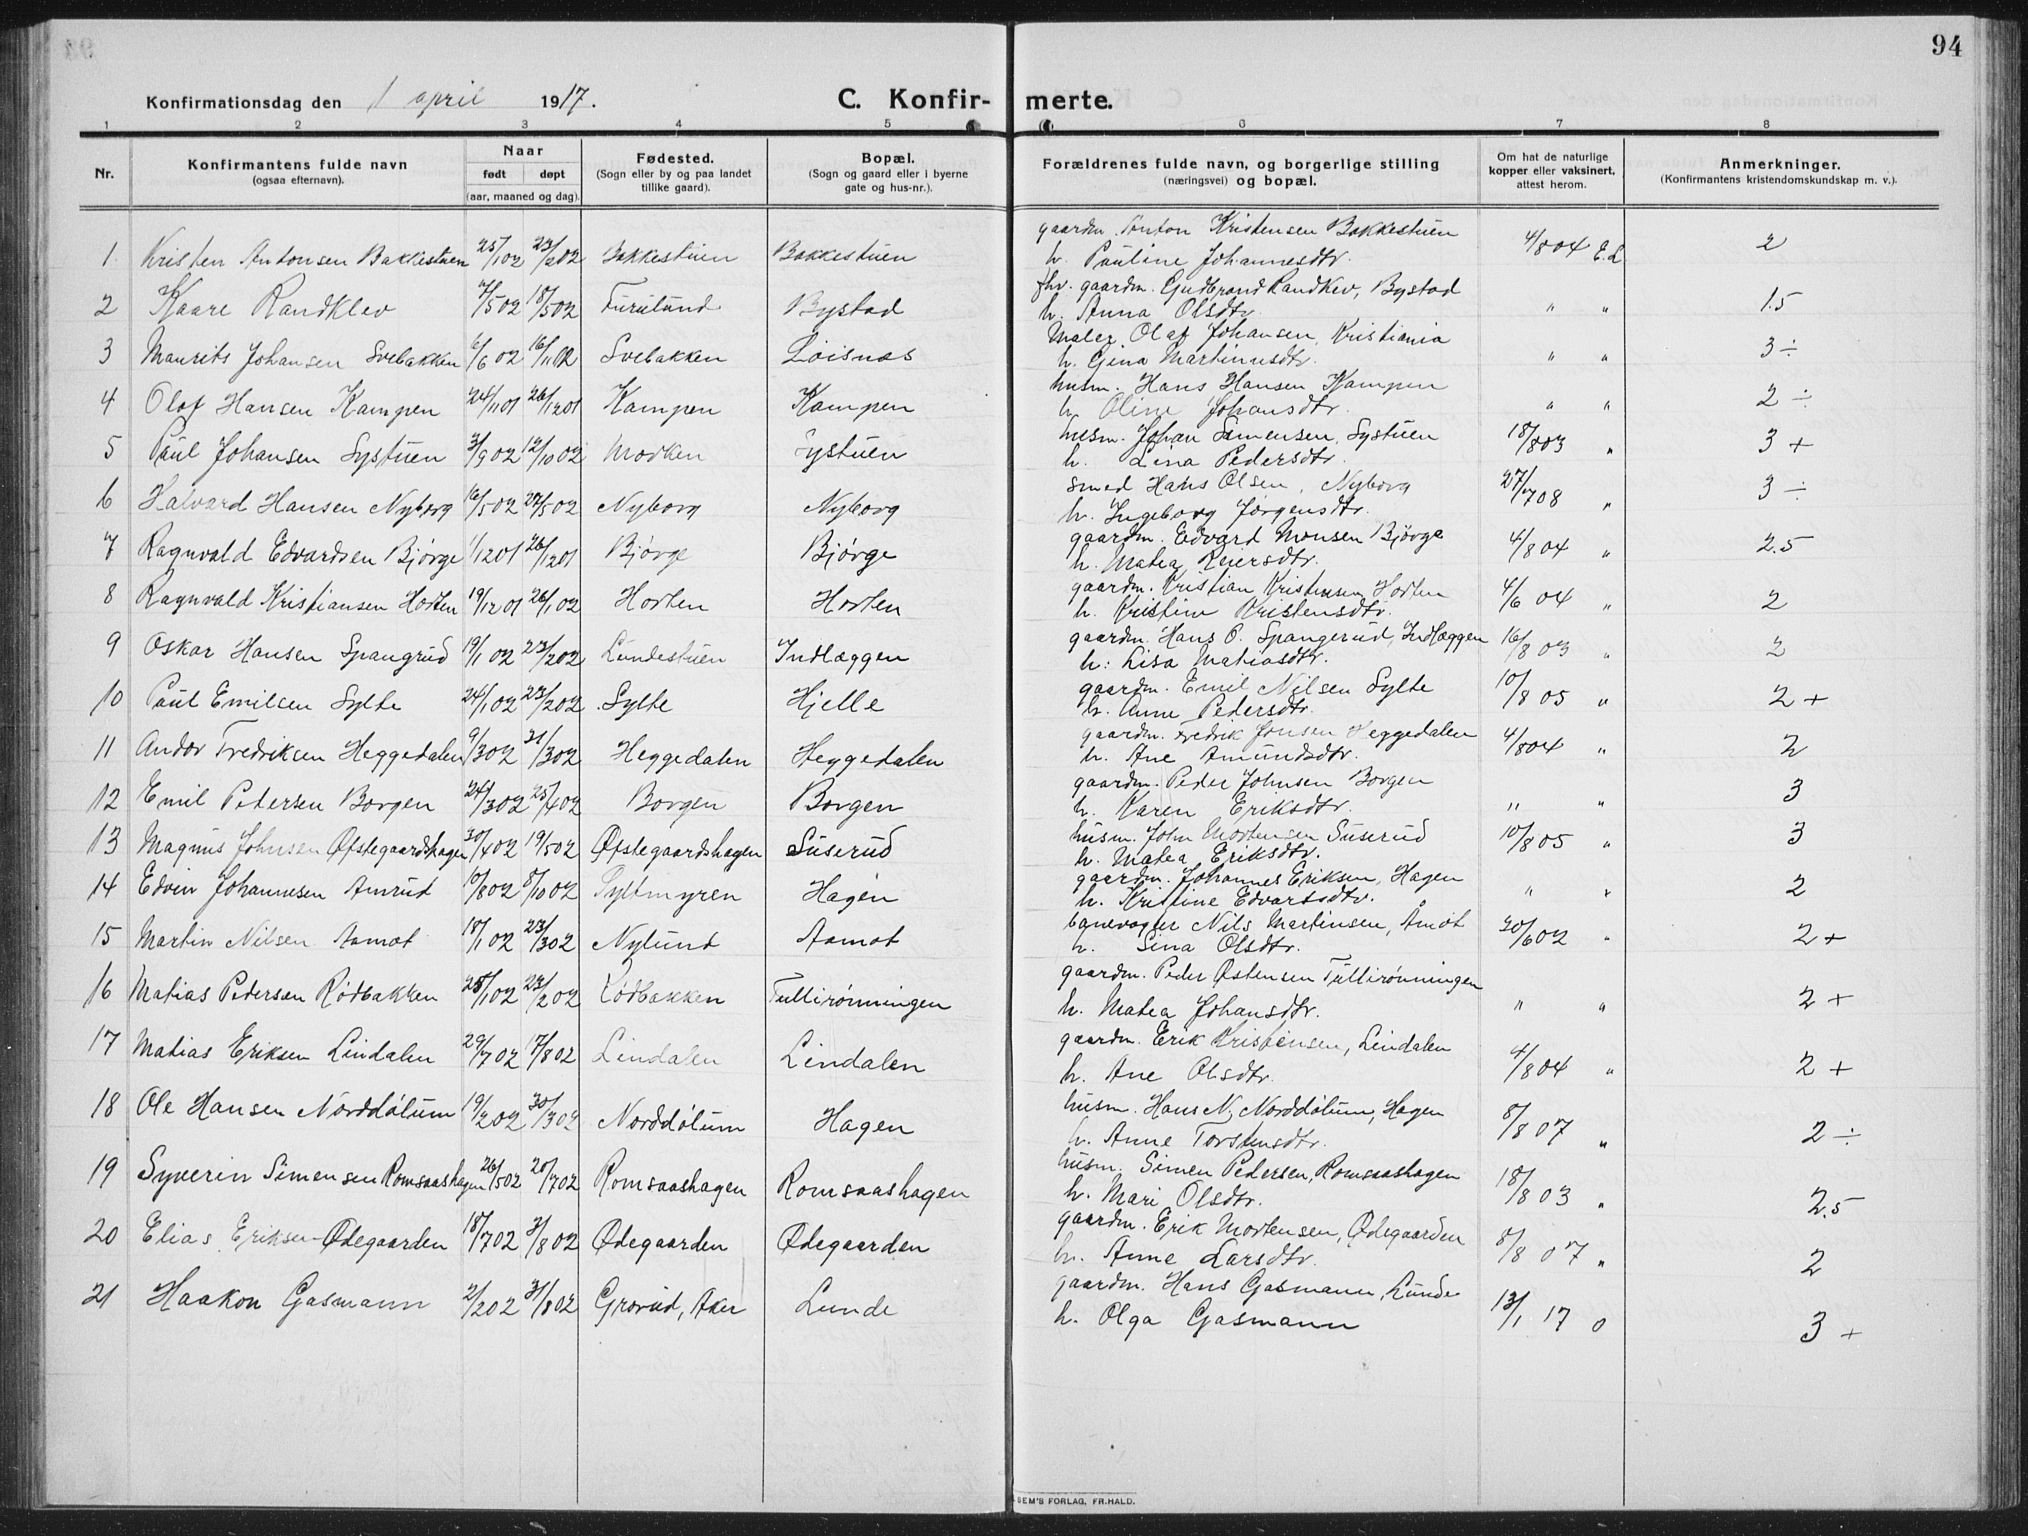 94
Konfirmationsdag den 1 april 1917.
C. Konfir- merte.
1 2 3 4 5 6 7 8
Nr. Konfirmantens fulde navn (ogsaa efternavn). Naar født døpt (aar, maaned og dag). Fødested. (Sogn eller by og paa landet tillike gaard). Bopæl. (Sogn og gaard eller i byerne gate og hus-nr.). Forældrenes fulde navn, og borgerlige stilling (næringsvei) og bopæl. Om hat de naturlige kopper eller vaksinert, attest herom. Anmerkninger. (Konfirmantens kristendomskundskap m. v.).
1 Kristen Antonsen Bakkestuen 25/1 02 23/2 02 Bakkestuen Bakkestuen gaardm. Anton Kristensen Bakkestuen 4/8 04 E.L 2
h. Pauline Johannesdtr.
2 Kaare Randklev 7/5 02 18/5 02 Furulund Bystad fhv. gaardm. Gudbrand Randklev, Bystad " " 1.5
h. Anna Olsdtr.
3 Maurits Johansen Svebakken 6/6 02 16/11 02 Svebakken Loisnæs Maler Olaf Johansen, Kristiania " " 3 ÷
h. Gina Martinusdtr.
4 Olaf Hansen Kampen 24/11 01 26/12 01 Kampen Kampen husm. Hans Hansen Kampen " " 2 ÷
h. Oline Johansdtr.
5 Paul Johansen Systuen 3/9 02 12/10 02 Morken Systuen husm. Johan Simensen, Systuen 18/8 03 " 3 +
h. Lina Pedersdtr.
6 Halvard Hansen Nyborg 16/5 02 27/5 02 Nyborg Nyborg smed Hans Olsen, Nyborg 27/7 08 " 3 ÷
h. Ingeborg Jørgensdtr.
7 Ragnvald Edvardsen Bjørge 1/12 01 26/12 01 Bjørge Bjørge gaardm. Edvard Monsen Bjørge 4/8 04 " 2.5
h. Matea Reiersdtr.
8 Ragnvald Kristiansen Horten 19/12 01 26/1 02 Horten Horten gaardm. Kristian Kristensen Horten 4/6 04 " 2
h. Kristine Kristensdtr.
9 Oskar Hansen Spangrud 19/1 02 23/2 02 Lundestuen Indlæggen gaardm. Hans O. Spangerud, Indlæggen 16/8 03 " 2
h. Lisa Matiasdtr.
10 Paul Emilsen Sylte 24/1 02 23/2 02 Sylte Hjelle gaardm. Emil Nilsen Sylte 10/8 05 " 2 +
h. Anne Pedersdtr.
11 Andor Fredriksen Heggedalen 9/3 02 31/3 02 Heggedalen Heggedalen gaardm. Fredrik Jonsen Heggedalen 4/8 04 " 2
h. Ane Amundsdtr.
12 Emil Pedersen Borgen 24/3 02 25/4 02 Borgen Borgen gaardm. Peder Johnsen Borgen " " 3
h. Karen Eriksdtr.
13 Magnus Johnsen Øfstegaardshagen 30/4 02 19/5 02 Øfstegaardshagen Suserud husm. John Mortensen Suserud 10/8 05 " 3
h. Matea Eriksdtr.
14 Edvin Johannesen Amrud 10/8 02 5/10 02 Tyltmyren Hagen gaardm. Johannes Eriksen, Hagen " " 2
h. Kristine Edvartsdtr.
15 Martin Nilsen Aamot 18/1 02 23/3 02 Nylund Aamot banevogter Nils Martinsen, Åmot 30/6 02 " 2 +
h. Sina Olsdtr.
16 Matias Pedersen Rødbakken 25/1 02 23/2 02 Rødbakken Tullirønningen gaardm. Peder Østensen Tullirønningen " " 2 +
h. Matea Johansdtr.
17 Matias Eriksen Lindalen 29/7 02 17/8 02 Lindalen Lindalen gaardm. Erik Kristensen, Lindalen 4/8 04 " 2 +
h. Ane Olsdtr.
18 Ole Hansen Norddølum 19/2 02 30/3 02 Norddølum Hagen husm. Hans N. Norddølum, Hagen 8/8 07 " 2 ÷
h. Anne Torstensdtr.
19 Syverin Simensen Romsaashagen 26/5 02 20/7 02 Romsaashagen Romsaashagen husm. Simen Pedersen, Romsaashagen 18/8 03 " 2.5
h. Mari Olsdtr.
20 Elias Eriksen Ødegaarden 18/7 02 3/8 02 Ødegaarden Ødegaarden gaardm. Erik Mortensen, Ødegaarden 8/8 07 " 2
h. Anne Larsdtr.
21 Haakon Gasmann 2/2 02 31/8 02 Grorud, Aker Lunde gaardm. Hans Gasmann, Lunde 13/1 17 0 3 +
h. Olga Gasmann
SEM'S FORLAG, FR.HALD.